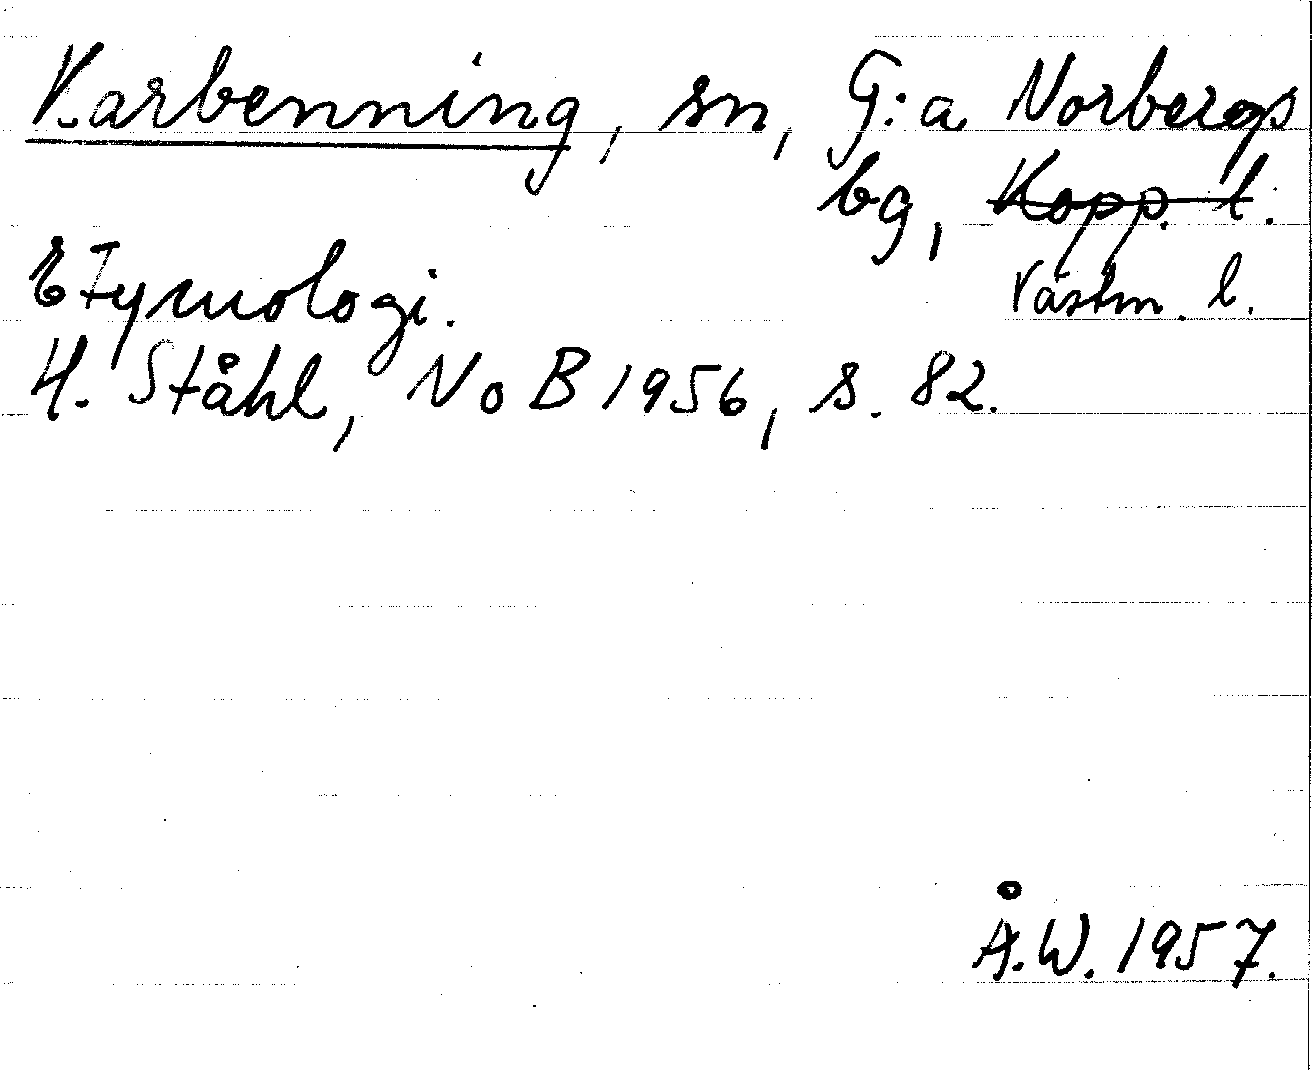 Karbenning, sn, G:a Norbergs
bg, Kopp. l.
Västm. l.
Etymologi.
H. Ståhl, NoB 1956, s. 82.
Å.W. 1957.